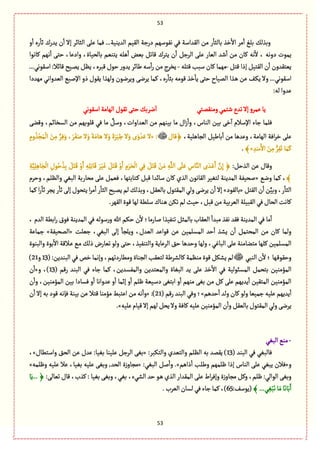 وبذلك بلغ أمر الأخذ بالثأر من القداسة في نفوسهم درجة القيم الدينية... فما على الثائر إلا أن يدرك ثأره أو
يموت دونه ، لأنه كان من أشد العار على الرجل أن يترك قاتل بعض أهله يتنعم بالحياة ، وادعا، حتى أنهم كانوا
يعتقدون أن القتيل إذا قتل حهما كان سبب قتله - يخرج من رأسه طائر يدور حول قبره ، يظل يصيح قائلا: اسقوني...
اسقوني... ولا يكف عن هذا الصياح حتى يأخذ قومه بثأره ، كما يرضى ويرضون ولهذا يقول ذو الإصبع العدواني مهددا
عدوا له:
يا عمرو إلا تدع شتمي ومنقصتي أضربك حتى تقول الهامة اسقوني
فلما جاء الإسلام آخى بين الناس ، وأزال ما بينهم من العداوات ، وسل ما في قلوبهم من السخائم ، وقضى
على خرافة الهامة ، وعدها من أباطيل الجاهلية ، ﴿قال ﷺ: «لا عَدْوَى وَلاَ طِيَرَةَ وَلاَ هَامَةَ وَلاَ صَفَرَ ، وَفِرَّ مِنَ الْمَجْذُومِ
كَمَا تَفِرُّ مِنَ الأَسَدِ» ﴾.
وقال عن الذحل: ﴿ إِنَّ أَعْدَى النَّاسِ عَلَى اللَّهِ مَنْ قَتَلَ فِي الْحَرَمِ أَوْ قَتَلَ غَيْرَ قَاتِلِهِ أَوْ قَتَلَ بِذُحُولِ الْجَاهِلِيَّةِ
﴾ ، كما وضع «صحيفة المدينة لتغيير القانون الذي كان سائدا قبل كتابتها ، فعمل على محاربة البغي والظلم ، وحرم
الثأر ، وبين أن القتل «بالقود» إلا أن يرضى ولي المقتول بالعقل ، وبذلك لم يصبح الثأر أمرا يتحول إلى ثأر يجر ثأرا كما
كانت الحال في القبيلة العربية من قبل ، حيث لم تكن هناك سلطة لها قوة القهر.
أما في المدينة فقد نفذ مبدأ العقاب بالمثل تنفيذا صارما ؛ لأن حكم الله ورسوله في المدينة فوق رابطة الدم ،
ولما كان من المحتمل أن يشد أحد المسلمين عن قواعد العدل ، ويلجأ إلى البغي ، جعلت «الصحيفة» جماعة
المسلمين كلها متضامنة على الباغي ، ولها وحدها حق الرعاية والتنفيذ ، حتى ولو تعارض ذلك مع علاقة الأبوة والبنوة
وحقوقها ؛ لأن النبي ﷺ لم يشكل قوة منظمة كالشرطة لتعقب الجناة ومطاردتهم ، وإنما خص في البندين: (13 و21)
المؤمنين بتحمل المسئولية في الأخذ على يد البغاة والمعتدين والمفسدين ، كما جاء في البند رقم (13)، «وأن
المؤمنين المتقين أيديهم على كل من بغى منهم أو ابتغى دسيعة ظلم أو إثما أو عدوانا أو فسادا بين المؤمنين ، وأن
أيديهم عليه جميعا ولو كان ولد أحدهم» ؛ وفي البند رقم (21): «وأنه من اعتبط مؤمنا قتلا عن بينة فإنه قود به إلا أن
يرضى ولي المقتول بالعقل وأن المؤمنين عليه كافة ولا يحل لهم إلا قيام عليه».
- منع البغي
فالبغي في البند (13) يقصد به الظلم والتعدي والتكبر: «بغى الرجل علينا بغيا: عدل عن الحق واستطال» ،
و«فلان يبغي على الناس إذا ظلمهم وطلب أذاهم». وأصل البغي: «مجاوزة الحد, وبغى عليه بغيا ، علا عليه وظلمه»
وبغى الوالي: ظلم ، وكل مجاوزة وإفراط على المقدار الذي هو حد الشيء ، بغي ، وبغى بغيا ؛ كذب ، قال تعالى: ﴿ ...يَا
أَبَانَا مَا نَبْغِي... ﴾ (يوسف:65) ، كما جاء في لسان العرب .